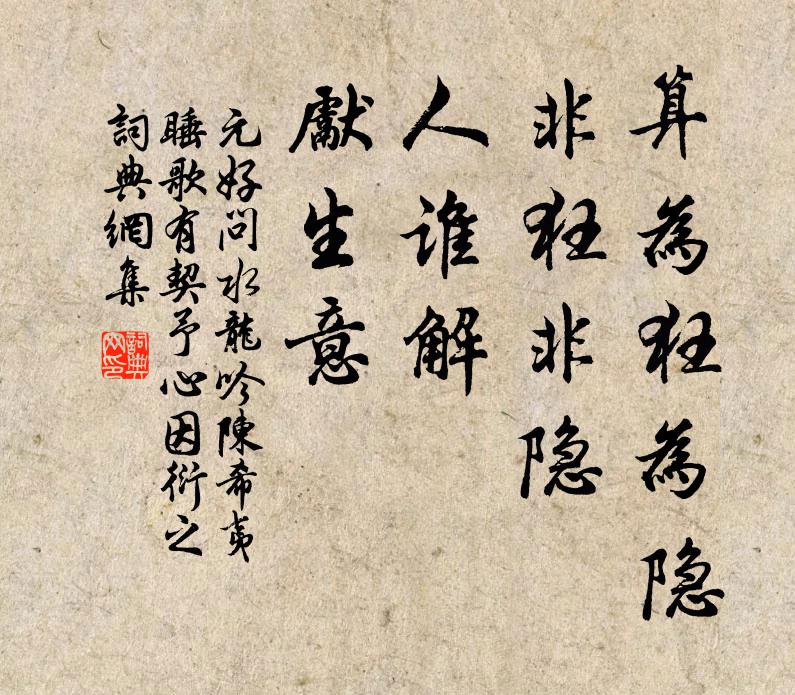 算為狂為隐
非狂非隐
人谁解
獻生意
元好问水龍吟陳希夷
睡歌有契予心因衍之
詞典網集
詞典网印